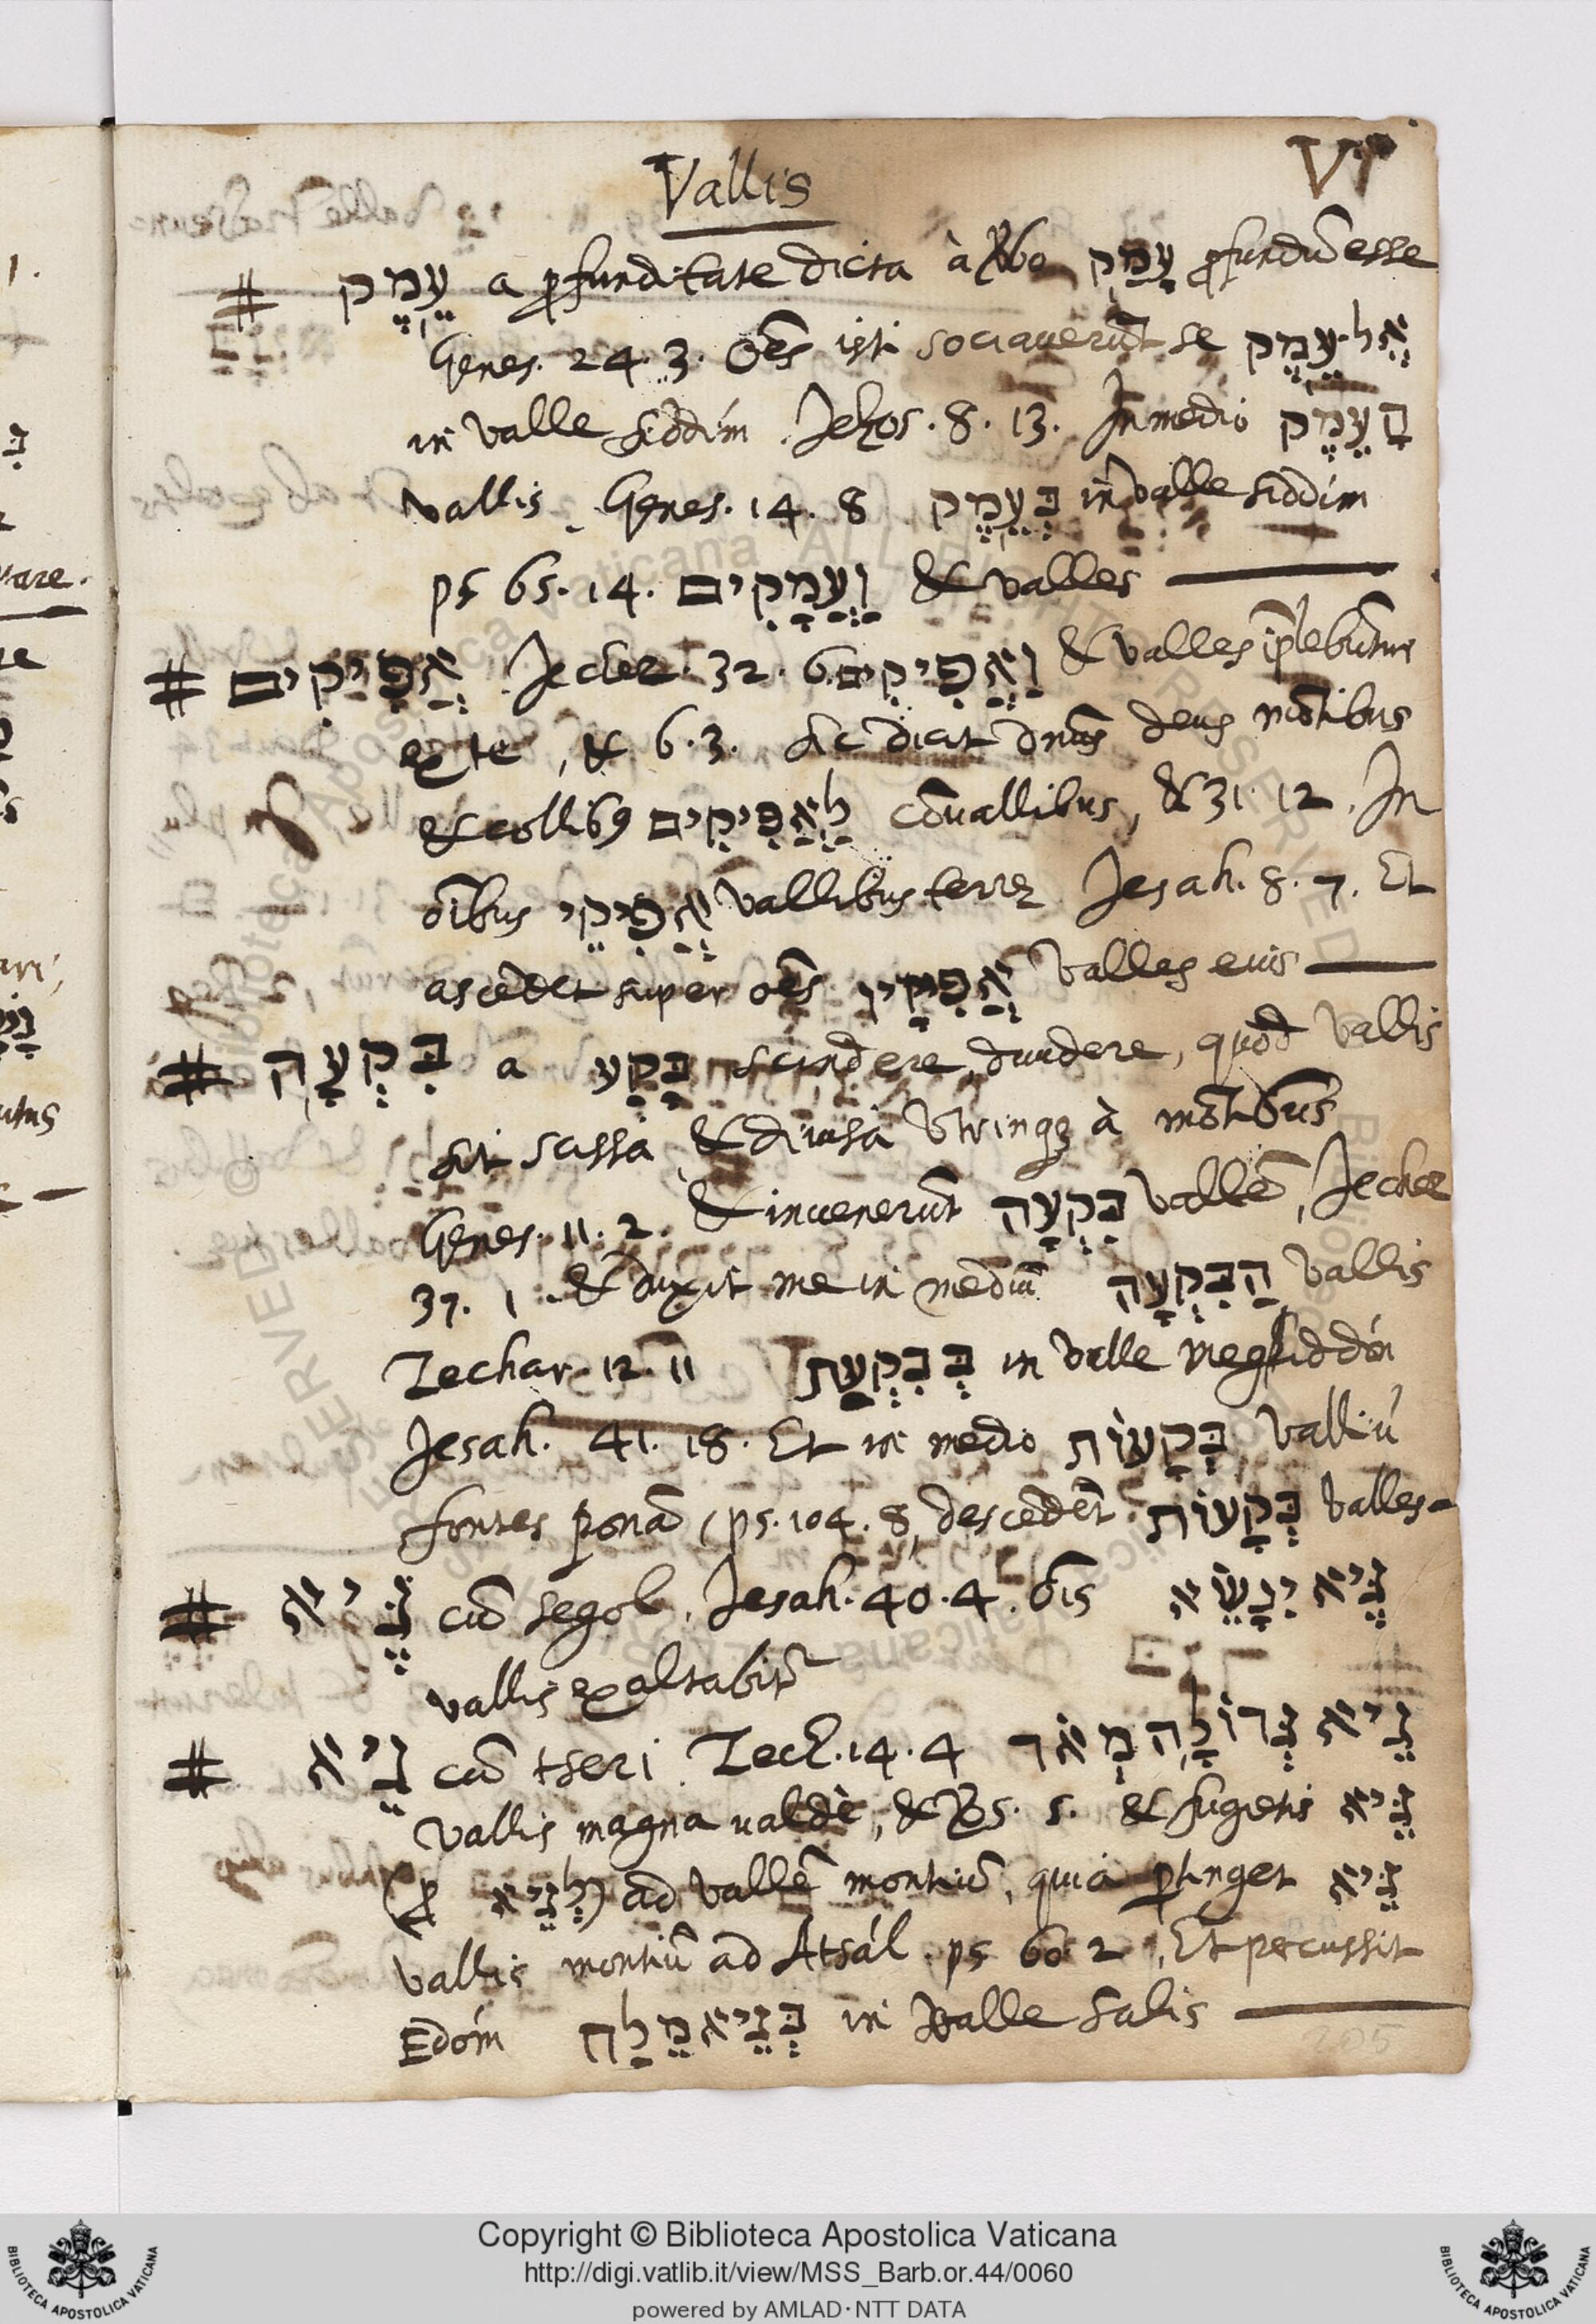 VI
Vallis
# עֵמֶק a ꝓfunditate dicta à vbo עָמַק ꝓfundū esse
Genes. 24. 3. Oēs isti sociauerūt se אֶל־עֵמֶק
in valle Siddím. Jehos. 8. 13. In medio הָעֵמֶק
vallis. Genes. 14. 8 בְּעֵמֶק in valle Siddím
ps 65. 14. וַעֲמָקִים & valles
# אֲפִיקִים Jechez. 32. 6. וַאֲפִיקִים & valles īplebūtur
ex te, & 6. 3. Sic dicit dn̄us deus mōtibus
& collib9 לָאֲפִיקִים cōuallibus, & 31. 12. In
oībus אֲפִיקֵי vallibus terrę Jesah. 8. 7. Et
ascēdet super oēs אֲפִיקָיו valles eius
# בִּקְעָה a בָּקַע scindere, diuidere, quòd vallis
sit scissa & diuisa vtrinqꝫ à mōtibus
Genes. 11. 2. & inuenerūt בִּקְעָה vallē, Jechez
37. 1. & duxit me in mediū הַבִּקְעָה vallis
Zechar. 12. 11 בְּבִקְעַת in valle Meghiddón
Jesah. 41. 18. Et in medio בְּקָעוֹת valliū
fontes ponā, ps. 104. 8, descēdēt בְּקָעוֹת valles
# גֶּיא cū segol. Jesah. 40. 4. oīs גֶּיא יִנָּשֵׂא
vallis exaltabitr̄
# גֵּיא cū tseri. Zech. 14. 4 גֵּיא גְּדוֹלָה מְאֹד
vallis magna ualdè, & vs. 5. & fugietis גֵּיא
(ꝓ לְגֵיא) ad vallē montiū, quia ꝑtinget גֵּיא
vallis montiū ad Atsál. ps 60. 2. Et percussit
Edóm בְּגֵיא מֶלַח in valle Salis
205
Copyright © Biblioteca Apostolica Vaticana
http://digi.vatlib.it/view/MSS_Barb.or.44/0060
powered by AMLAD·NTT DATA
BIBLIOTECA APOSTOLICA VATICANA
BIBLIOTECA APOSTOLICA VATICANA